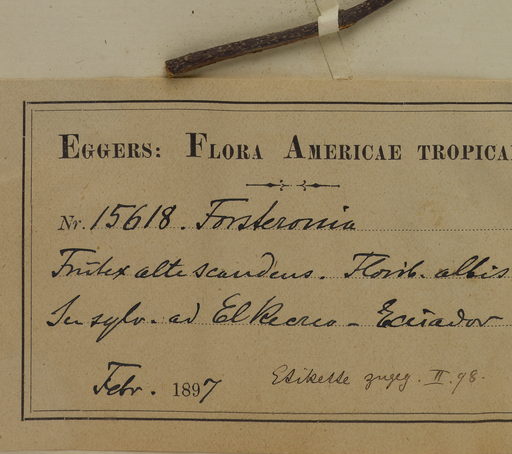 EGGERS: FLORA AMERICAE TROPICA
Nr. 15618. Forsteronia
Frutex alte scandens. Florib. albis
In sylv. ad El Recreo - Ecuador
Febr. 1897 Etikette zugeg. II. 98.